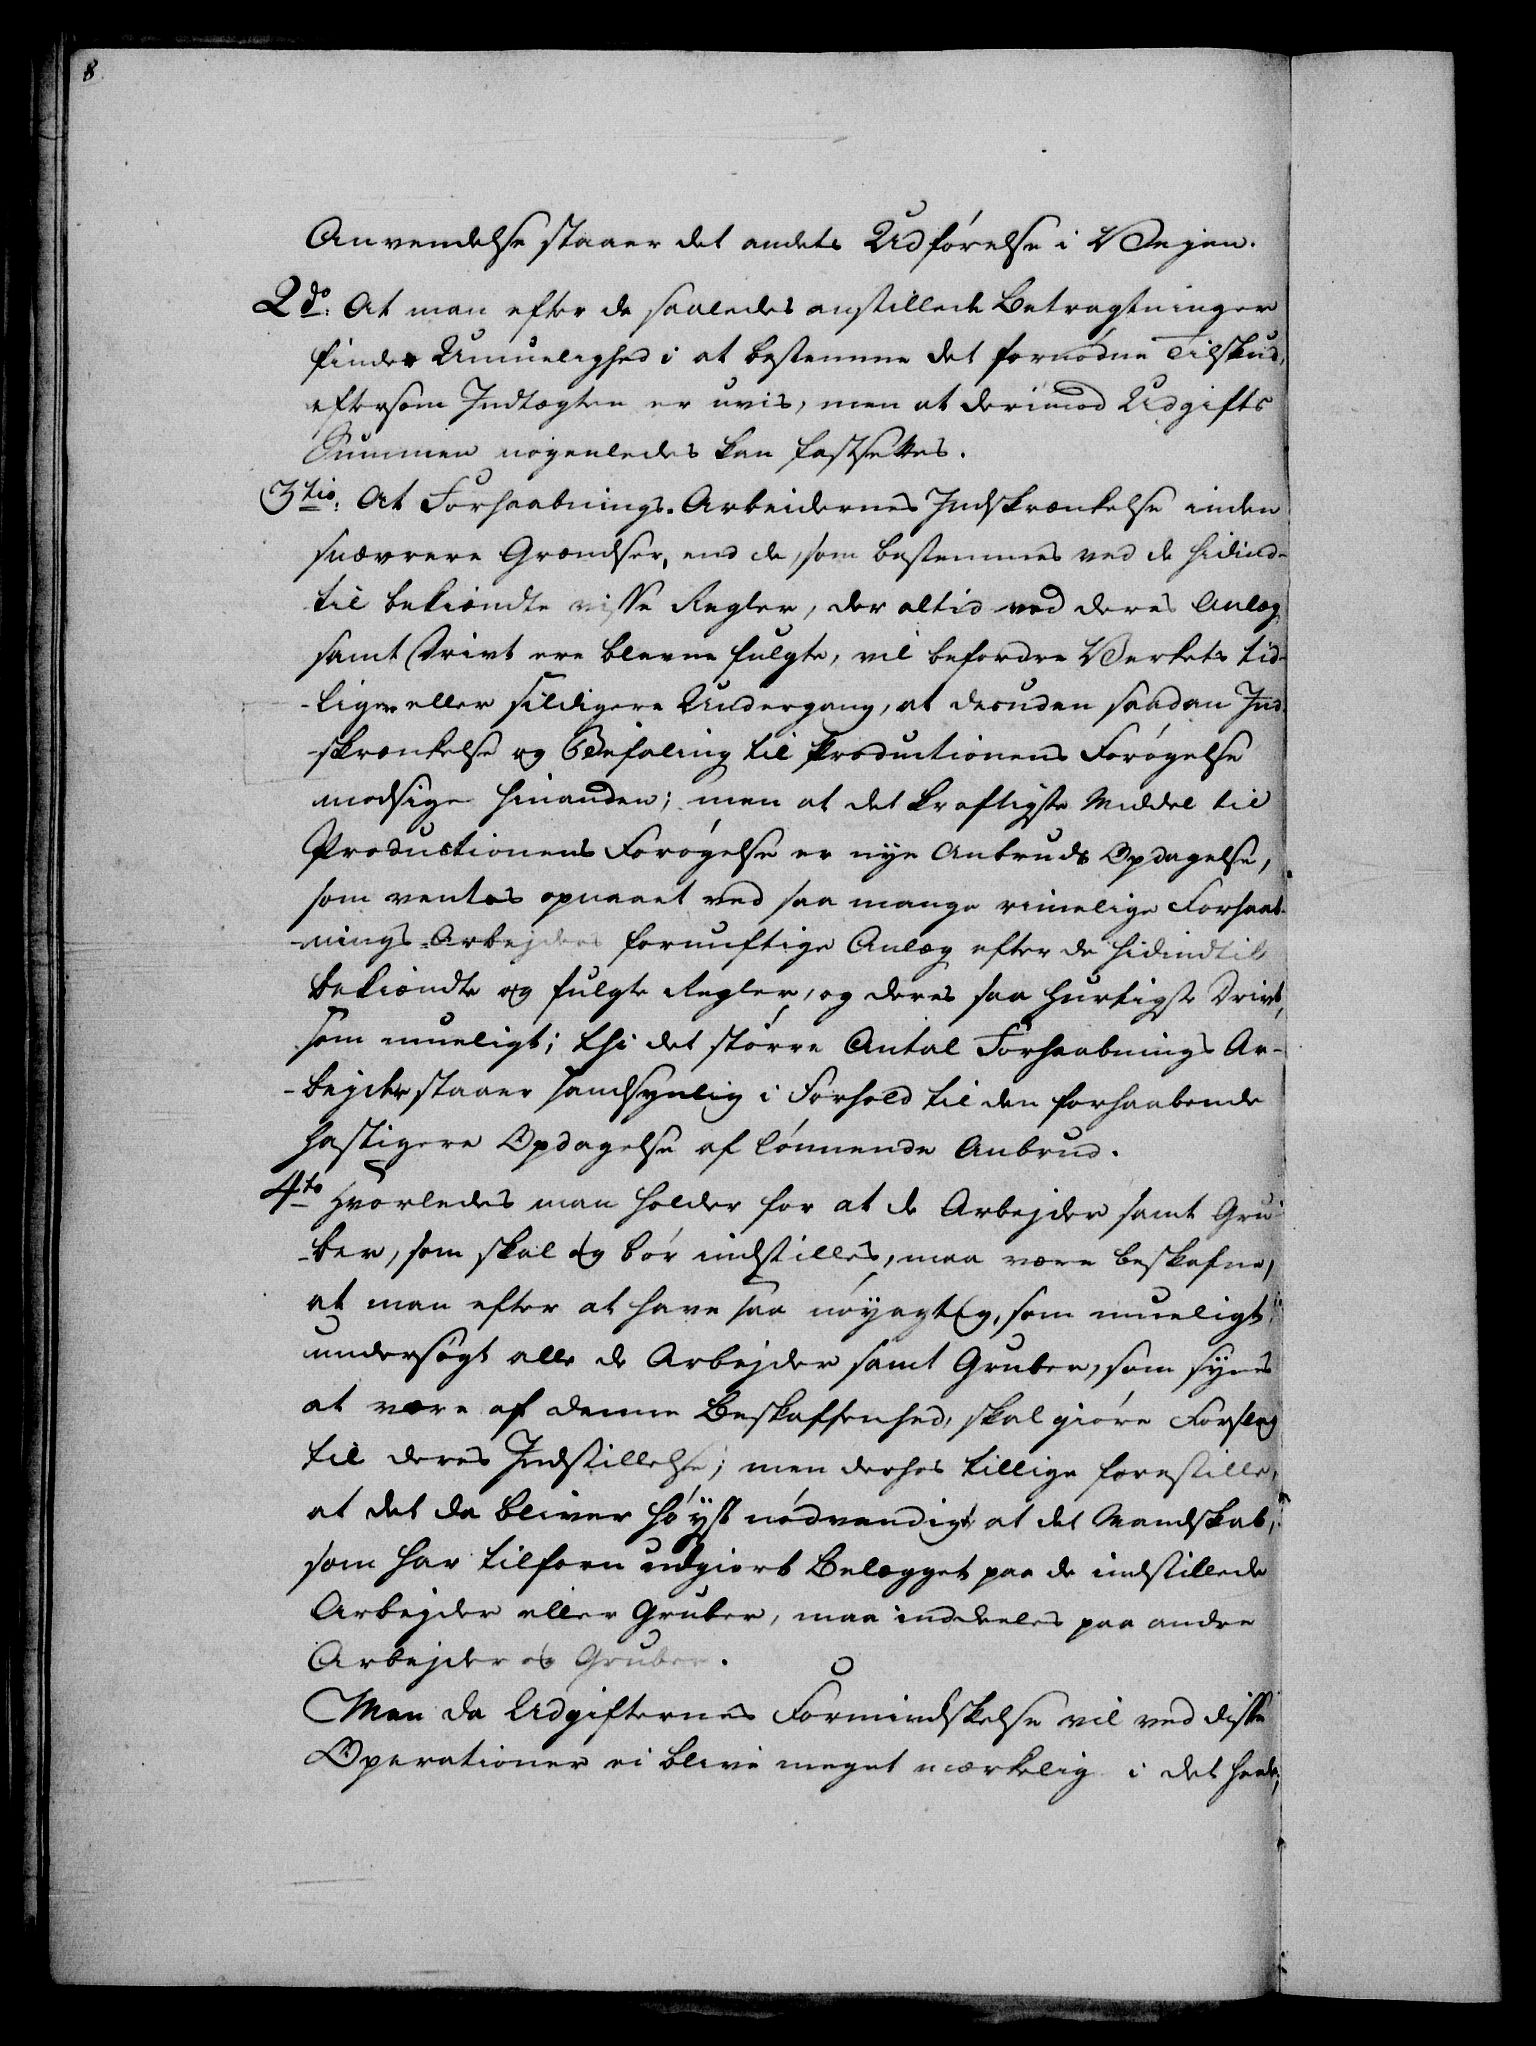 8
Anvendelse staaer det andets Udførelse i Vejen.
2do. At man efter de saaledes anstillede Betragtninger
finder Umuelighed i at bestemme det fornødne Tilskud,
eftersom Indtægten er uvis, men at derimod Udgifts
Summen nogenledes kan fastsettes.
3tio. At Forhaabnings-Arbeidernes Indskrænkelse inden
snævrere Grændser, end de, som bestemmes ved de hidind-
til bekiændte visse Regler, der altid ved deres Anlæg
samt Drivt ere blevne fulgte, vil befordre Verkets tid-
-ligere eller sildigere Undergang, at desuden saadan Ind-
-skrænkelse og Befaling til Productionens Forøgelse
modsige hinanden; men at det kraftigste Middel til
Productionens Forøgelse er nye Anbruds Opdagelse,
som ventes opnaaet ved saa mange rimelige Forhaab-
-nings-Arbejders fornuftige Anlæg efter de hidindtil
bekiændte og fulgte Regler, og deres saa hurtigste Drivt,
som mueligt; thi det større Antal Forhaabnings Ar-
-bejder staaer sandsynlig i Forhold til den forhaabende
hastigere Opdagelse af lønnende Anbrud.
4to Hvorledes man holder for at de Arbejder samt Gru-
-ber, som skal og bør indstilles, maa være beskafne,
at man efter at have saa nøyagtig, som mueligt
undersøgt alle de Arbejder samt Gruber, som synes
at være af denne Beskaffenhed, skal giøre Forslag
til deres Indstillelse; men derhos tillige forestille,
at det da bliver høyst nødvendigt at det Mandskab,
som har tilforn udgiort Belægget paa de indstillede
Arbejder eller Gruber, maa inddeeles paa andre
Arbejder og Gruber.
Men da Udgifternes Formindskelse vil ved disse
Operationer ei blive meget mærkelig i det heele,